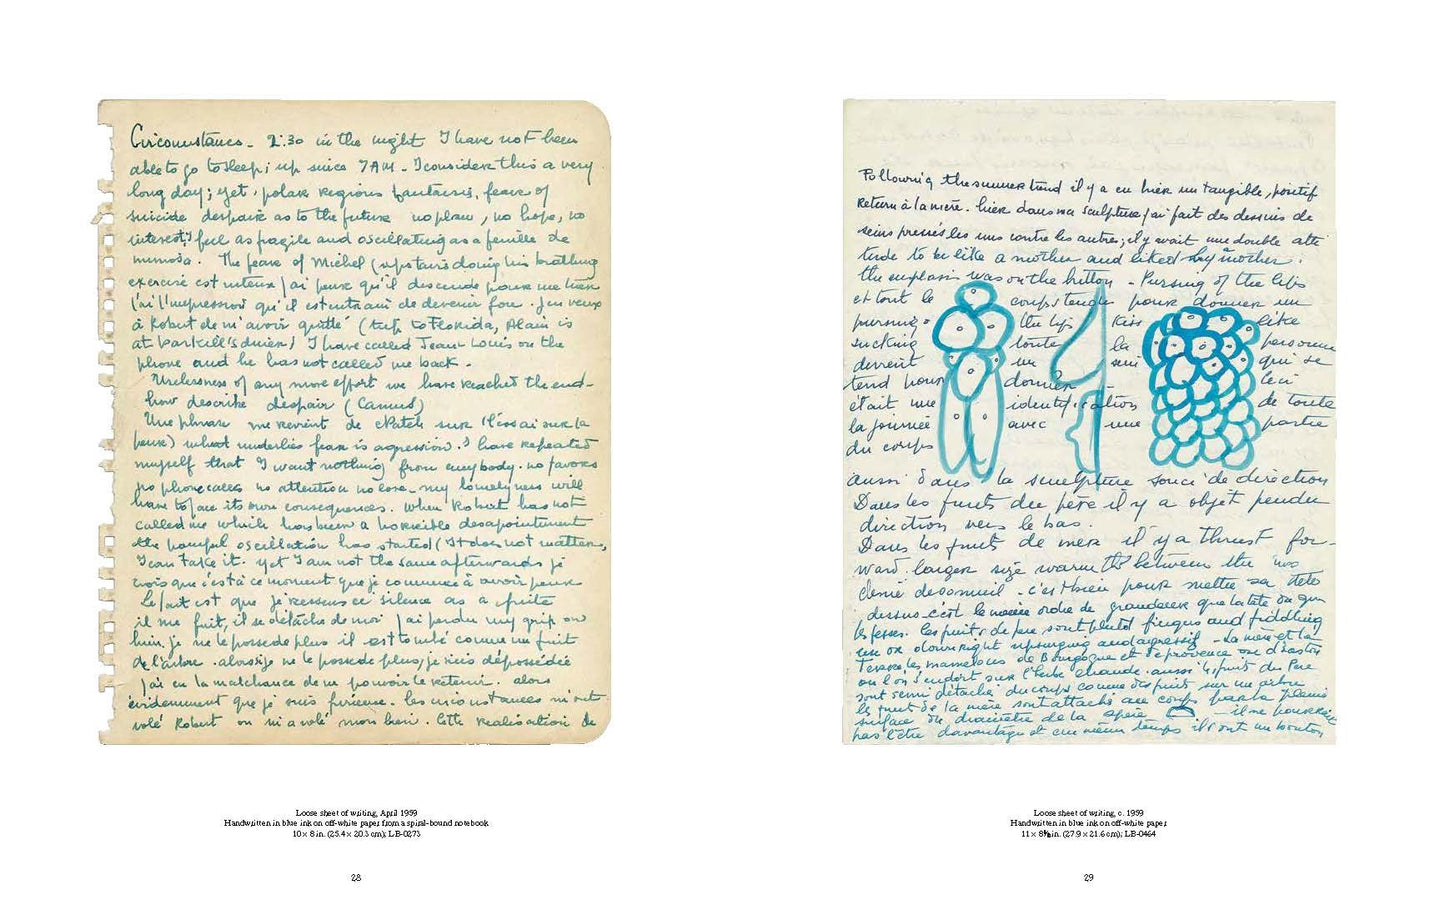 Circumstances - 2:30 in the night I have not been
able to go to sleep; up since 7AM - I consider this a very
long day; yet, polar regions fantasies, fear of
suicide despair as to the future no plan, no hope, no
interest, I feel as fragile and oscillating as a feuille de
mimosa. The fear of Michel (upstairs doing his breathing
exercise est intense j'ai peur qu'il descende pour me tuer
j'ai l'impression qu'il est entrain de devenir fou. J'en veux
à Robert de m'avoir quitté (trip to Florida, Alain is
at Barkill's dinner) I have called Jean-Louis on the
phone and he has not called me back -
Uselessness of any more effort we have reached the end -
how describe despair (Camus)
Une phrase me revient de sur l'essai sur la
peur) what underlies fear is agression. I have repeated
myself that I want nothing from everybody. no favors
no phone calls no attention no love - my loneliness will
have to face its own consequences. When Robert has not
called me which has been a horrible desapointment
the painful oscillation has started (It does not matter,
I can take it. yet I am not the same afterwards je
crois que c'est à ce moment que je commence à avoir peur
Le fait est que je ressens ce silence as a fuite
il me fuit, il se détache de moi j'ai perdu my grip on
him, je ne le possede plus il est tombé comme un fruit
de l'arbre. alors si je ne le possede plus, je suis dépossédée
j'ai eu la malchance de ne pouvoir le retenir. alors
évidemment que je suis furieuse. les circonstances m'ont
volé Robert on m'a volé mon bien. Cette realisation de
Loose sheet of writing, April 1959
Handwritten in blue ink on off-white paper from a spiral-bound notebook
10 × 8 in. (25.4 × 20.3 cm); LB-0273
28
Following the summer trend il y a eu hier un tangible, positif
return à la mère. hier dans ma sculpture j'ai fait des dessins de
seins pressés les uns contre les autres; il y avait une double atti
tude to be like a mother and liked by mother.
the emphasis was on the button - Pursing of the lips
et tout le corps tendu pour donner un
pursing the lip kiss like
sucking toute la personne
devient un sein qui se
tend pour donner - ceci
etait une identification de toute
la journée avec une partie
du corps
aussi dans la sculpture souci de direction
Dans les fruits du père il y a objet pendu
direction vers le bas.
Dans les fruits de mer il y a thrust for-
ward larger size warmth between the two
demi sommeil - c'est bien pour mettre sa tete
dessus c'est le meme ordre de grandeur que la tete ou que
les fesses. les fruits de père sont plutot fingers and fiddling
use or downright upsurging and agressif - La mère et la
Terre les mamelons de Bourgogne et de provence ou d'easton
ou l'on s'endort sur l'herbe chaude. aussi les fruits du Pere
sont semi détachés du corps comme des fruits sur un arbre
le fruit de la mère sont attachés au corps par la pleine
surface du diamètre de la spère il ne pourrait
pas l'être davantage et en même temps ils ont un bouton
Loose sheet of writing, c. 1959
Handwritten in blue ink on off-white paper
11 × 8½ in. (27.9 × 21.6 cm); LB-0464
29